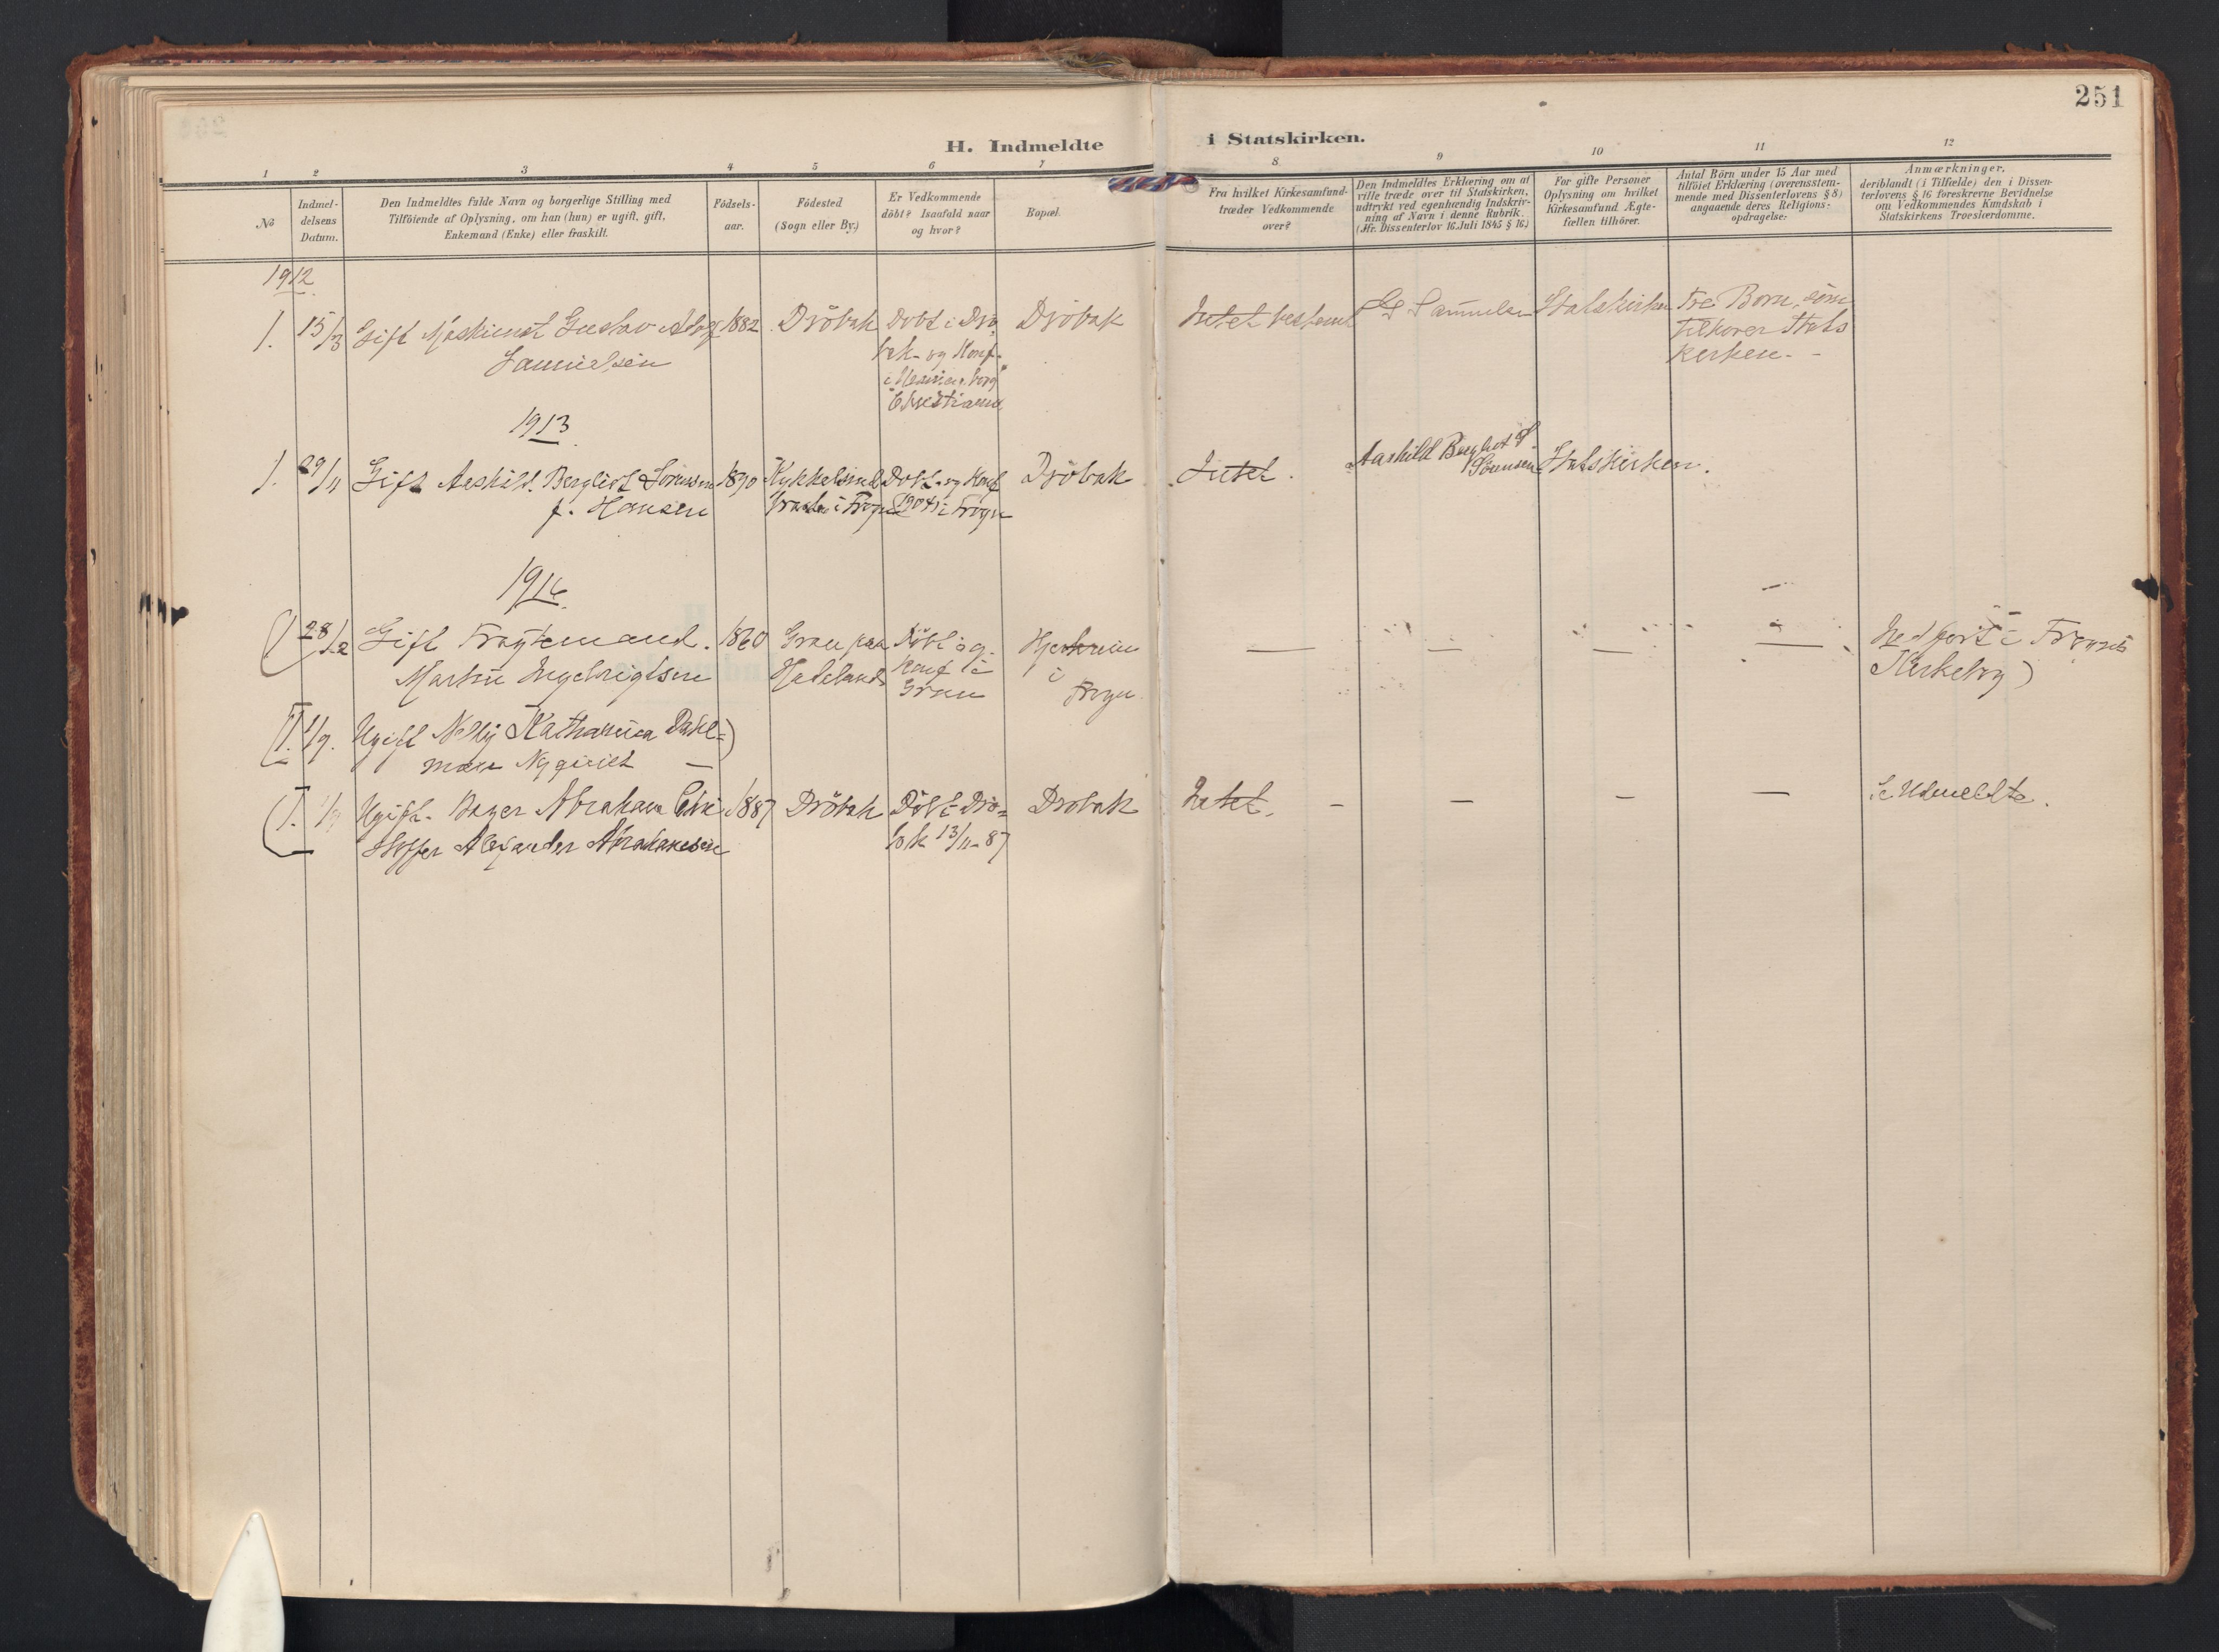 251
H. Indmeldte i Statskirken.
1 2 3 4 5 6 7 8 9 10 11 12
No
Indmel-
delsens
Datum.
Den Indmeldtes fulde Navn og borgerlige Stilling med
Tilföiende af Oplysning, om han (hun) er ugift, gift,
Enkemand (Enke) eller fraskilt.
Födsels-
aar.
Födested
(Sogn eller By.)
Er Vedkommende
döbt? Isaafald naar
og hvor?
Bopæl.
Fra hvilket Kirkesamfund-
træder Vedkommende
over?
Den Indmeldtes Erklæring om at
ville træde over til Statskirken,
udtrykt ved egenhændig Indskriv-
ning af Navn i denne Rubrik.
(Jfr. Dissenterlov 16 Juli 1845 § 16.)
For gifte Personer
Oplysning om hvilket
Kirkesamfund Ægte-
fællen tilhörer.
Antal Börn under 15 Aar med
tilföiet Erklæring (overensstem-
mende med Dissenterlovens § 8)
angaaende deres Religions-
opdragelse.
Anmærkninger,
deriblandt (i Tilfælde) den i Dissen-
terlovens § 16 foreskrevne Bevidnelse
om Vedkommendes Kundskab i
Statskirkens Troeslærdomme.
1912
1. 15/3 Gift Maskinist Gustav Adolf
Samuelsen
1882
Dröbak
Döbt i Drö
bak og Konf.
i
Christiania
Dröbak
Intet bestemt
G Samuelsen
Statskirken
Tre Born, som
tilhorer Stats
kirken -
1913
1. 29/11 Gift Aashild Bergliot Sörensen
f. Hansen
1890
i Frogn
Döbt og Konf
1904 i Frogn
Dröbak
Intet.
Aashild Bergliot H
Sörensen
Statskirken.
1916
(1 28/12 Gift
Martin Ingebrigtsen
1860
Gran paa
Hadeland
Döbt og
Konf i
Gran
i
Frogn
— — — —
Indfört i Frogns
Kirkebog)
(I. 1/9. Ugift Nelly Katharina Dahl=)
man Nyquist —
(I. 1/9 Ugift. Bager Abraham Chri
stoffer Alexander Abrahamsen
1887
Dröbak
Döbt Drö=
bak 13/11-87
Drobak
Intet. — — — —
Se Udmeldte.